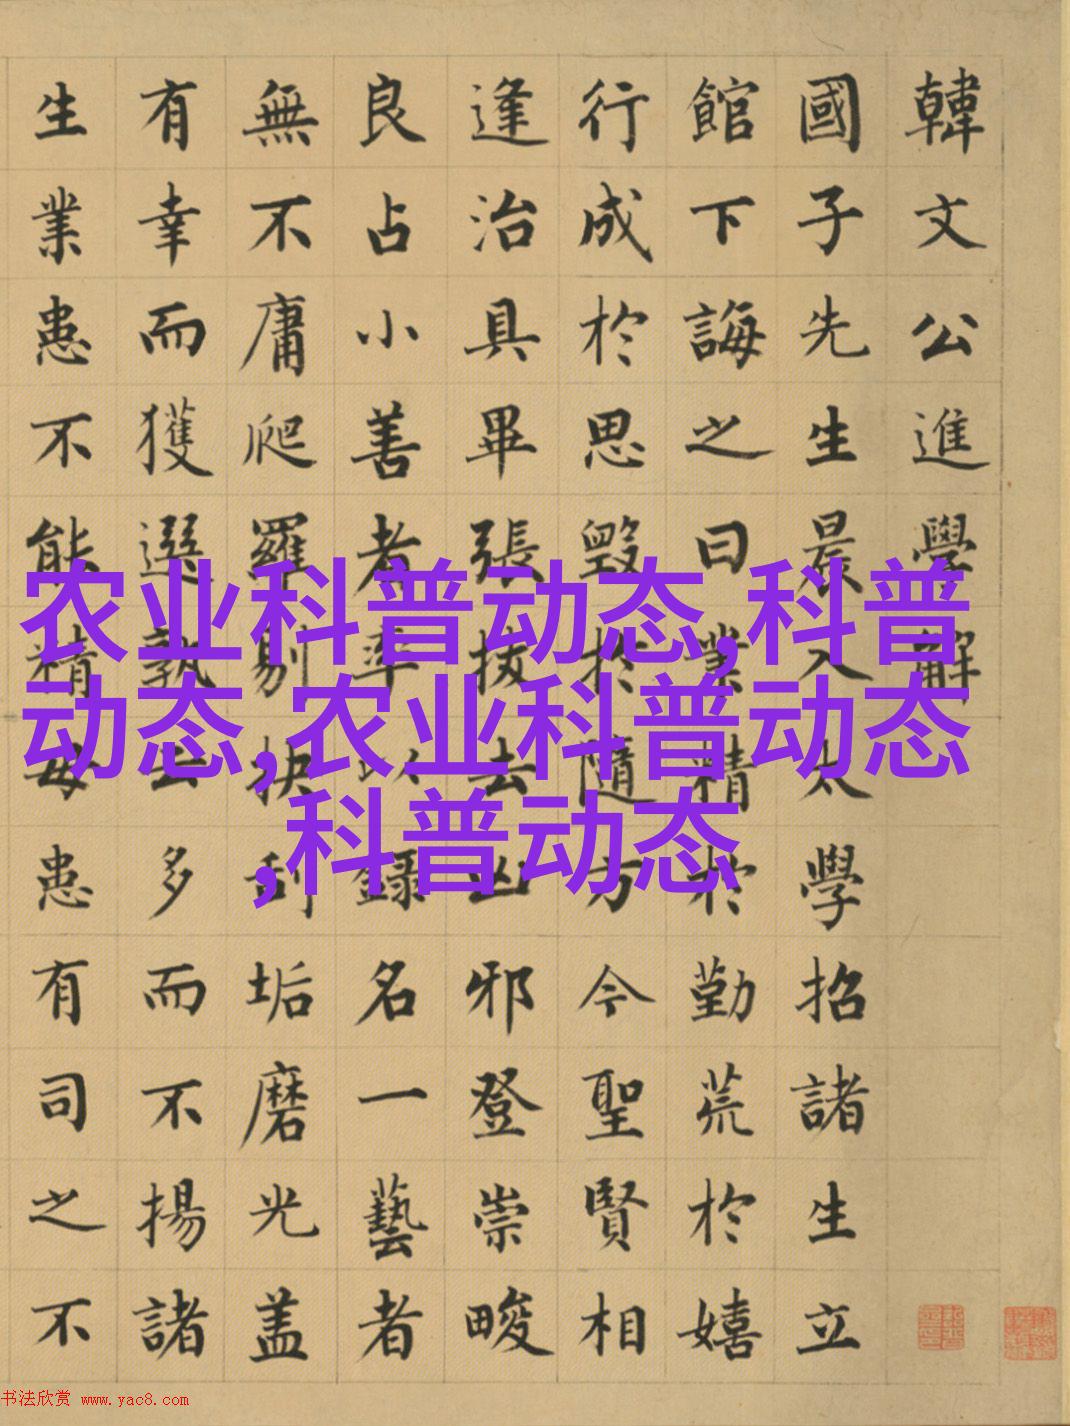 韓文公進學解
國子先生晨入太學招諸生立
館下誨之曰業精於勤荒於嬉
行成於思毀於隨方今聖賢相
逢治具畢張拔去凶邪登崇畯
良占小善者率以錄名一藝者
無不庸爬羅剔抉刮垢磨光盖
有幸而獲選孰云多而不揚諸
生業患不能精毋患有司之不
农业科普动态,科普
动态,农业科普动态
,科普动态
书法欣赏 www.yac8.com